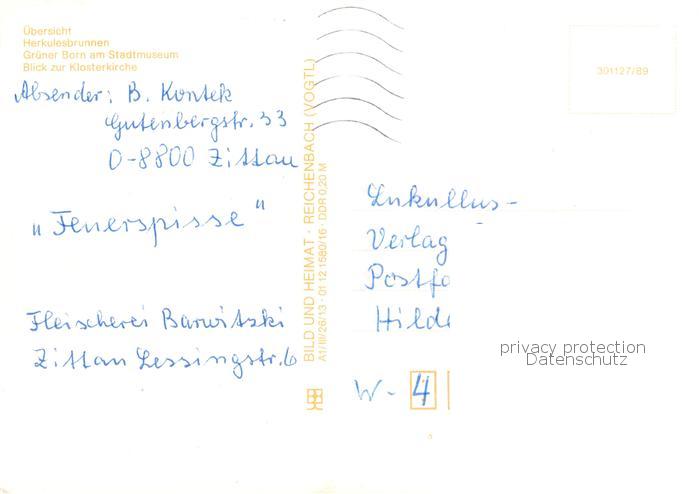 Übersicht
Herkulesbrunnen
Grüner Born am Stadtmuseum
Blick zur Klosterkirche
Absender: B. Kontek
Gutenbergstr. 33
O-8800 Zittau
"Feuerspisse"
Fleischerei Barwitzki
Zittau Lessingstr. 6
BILD UND HEIMAT · REICHENBACH (VOGTL)
A1/III/26/13 · 01 12 1580/16 · DDR 0,20 M
301127/89
Lukullus-
Verlag
Postfa
Hilde
W-4
privacy protection
Datenschutz